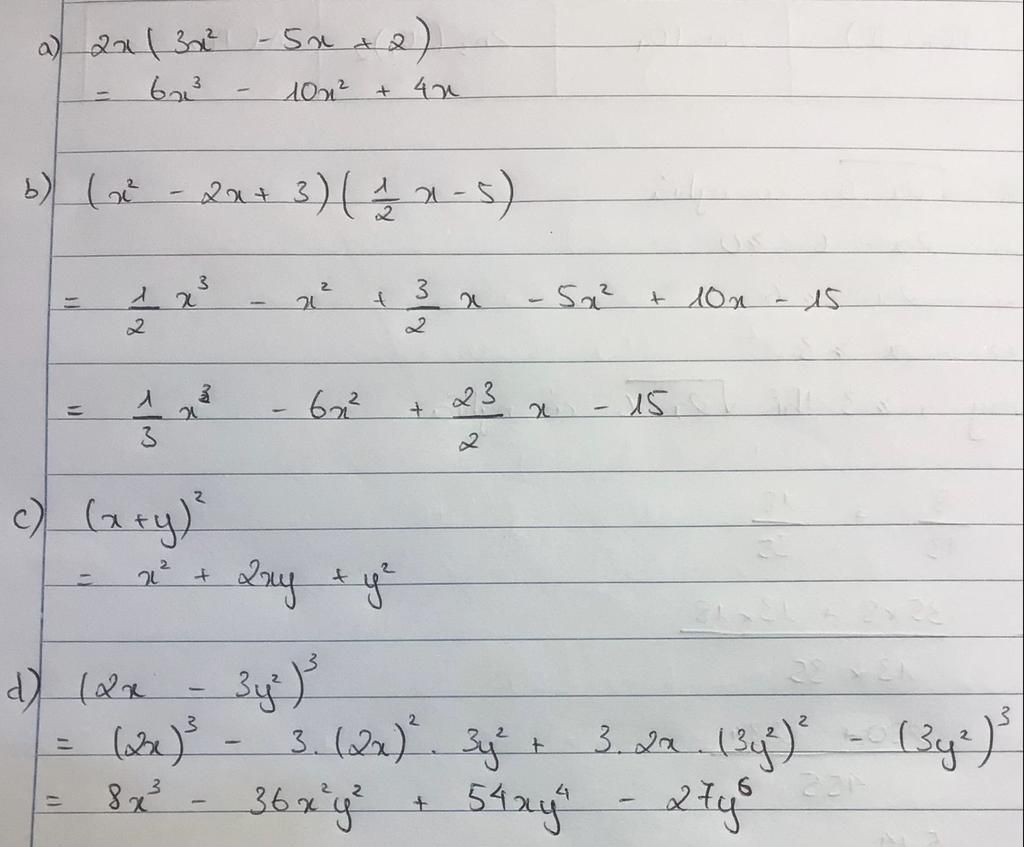 a) 2x(3x² - 5x + 2)
= 6x³ - 10x² + 4x
b) (x² - 2x + 3)(1/2 x - 5)
= 1/2 x³ - x² + 3/2 x - 5x² + 10x - 15
= 1/3 x³ - 6x² + 23/2 x - 15
c) (x + y)²
= x² + 2xy + y²
d) (2x - 3y²)³
= (2x)³ - 3.(2x)².3y² + 3.2x.(3y²)² - (3y²)³
= 8x³ - 36x²y² + 54xy⁴ - 27y⁶